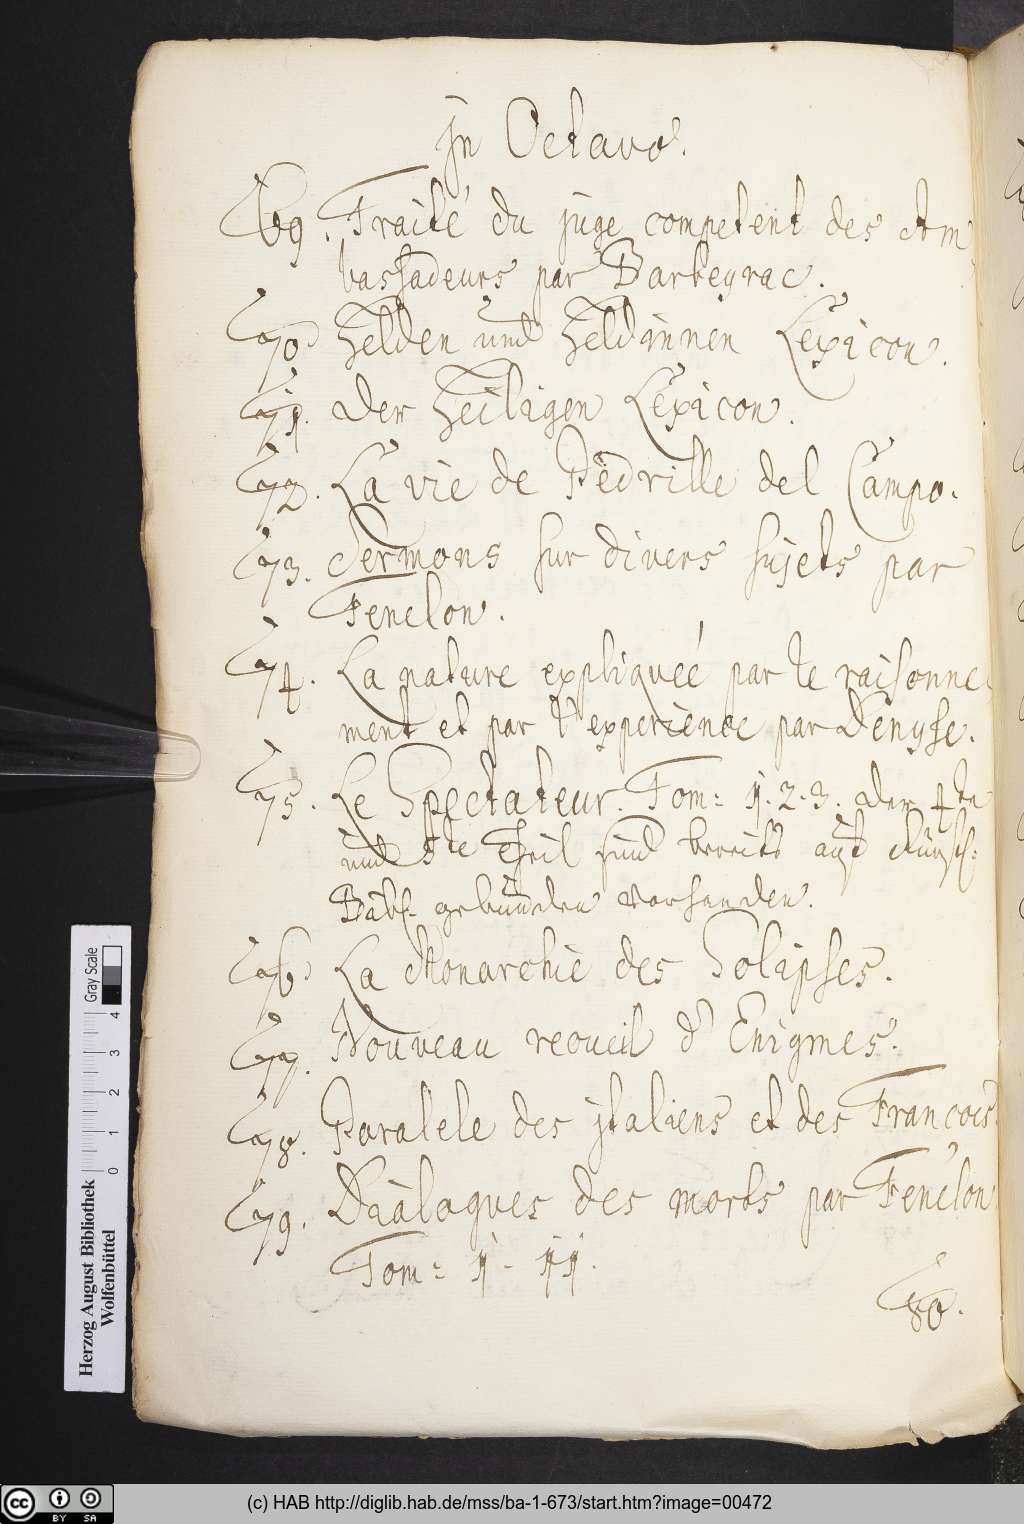 jn Octavo.
69. Traité du juge competent des Am
bassadeurs par Barbeyrac.
70. Helden und Heldinnen Lexicon.
71. Der Heiligen Lexicon.
72. La vie de Pedrille del Campo.
73. Sermons sur divers sujets par
Fenelon.
74. La nature expliqueé par le raisonne
ment et par l'experience par Denyse.
75. Le Spectateur. Tom: 1. 2. 3. der 4te
und 5te Theil sind bereits auf
gebunden vorhanden.
76. La Monarchie des Solipses.
77. Nouveau recueil d'Enigmes.
78. Paralele des jtaliens et des Francois.
79. Dialogues des morts par Fenelon
Tom: 1. 11.
80.
Gray Scale
0 1 2 3 4
Herzog August Bibliothek
Wolfenbüttel
cc BY SA
(c) HAB http://diglib.hab.de/mss/ba-1-673/start.htm?image=00472